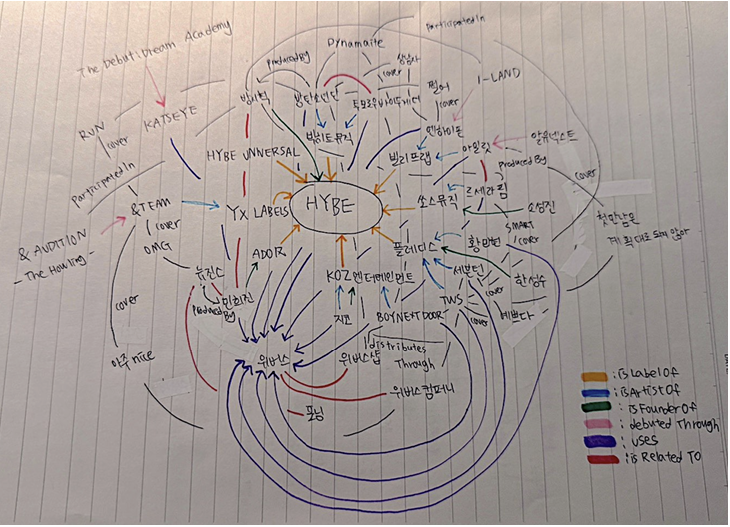 participatedIn
Dynamaite
The Debut: Dream Academy
ProducedBy
상남자
cover
I-LAND
방시혁
방탄소년단
투모로우바이투게더
필어
cover
RUN
cover
KATSEYE
빅히트뮤직
엔하이픈
HYBE UNIVERSAL
빌리프랩
아일릿
알유넥스트
participatedIn
produced By
cover
&TEAM
YX LABELS
HYBE
쏘스뮤직
르세라핌
소성진
첫만남은
계획대로 되지 않아
& AUDITION
- The Howling -
cover
OMG
ADOR
플레디스
황민현
SMART
cover
뉴진스
KOZ 엔터테인먼트
세븐틴
한성수
민희진
Produced By
cover
지코
BOYNEXTDOOR
TWS
cover
cover
예쁘다
아주 nice
distributes
Through
위버스
위버스샵
위버스컴퍼니
포닝
: isLabelOf
: isArtistOf
: isFounderOf
: debuted Through
: uses
: is Related TO